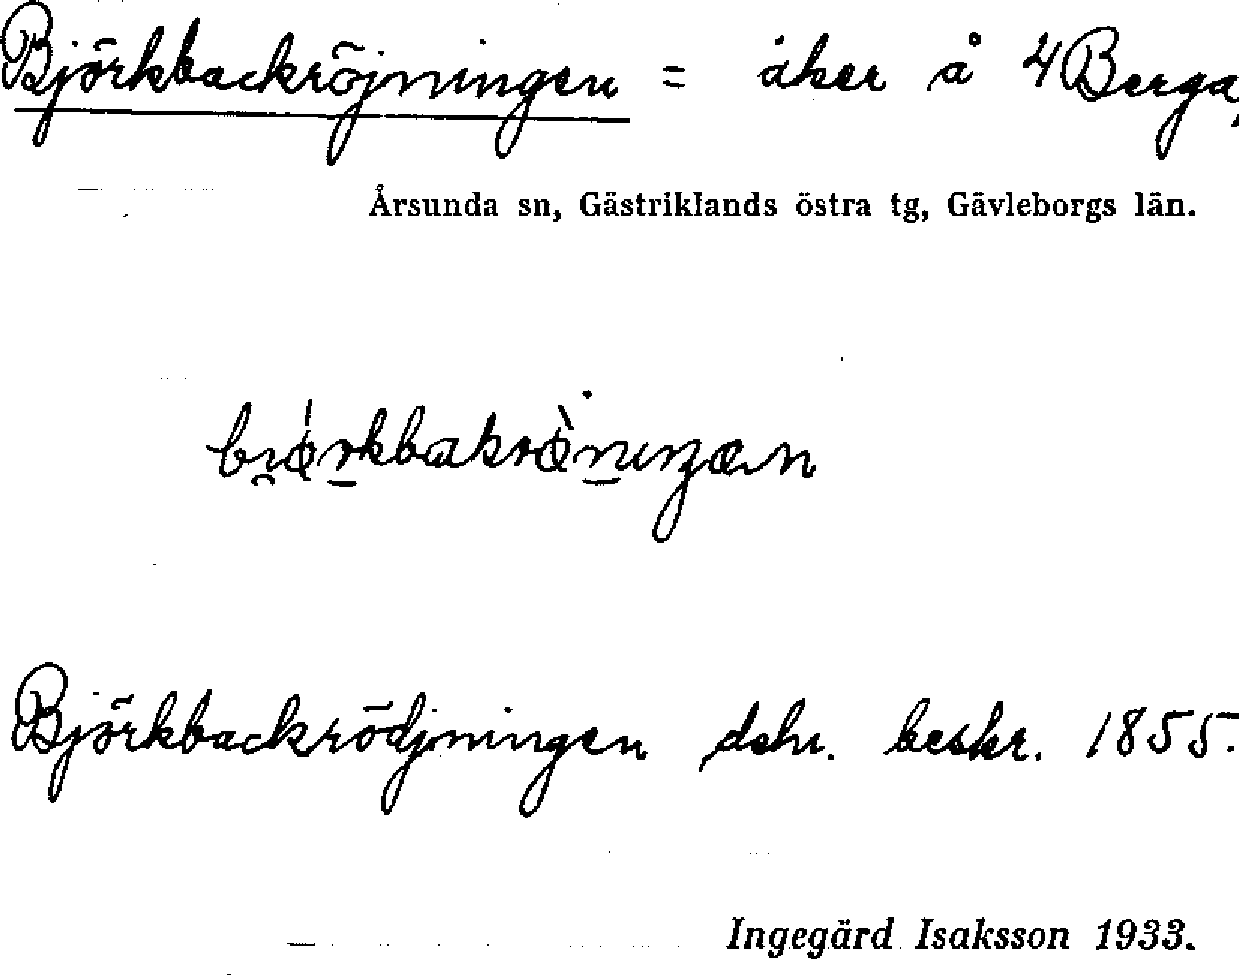 Björkbackröjningen = åker å 4 Berga,
Årsunda sn, Gästriklands östra tg, Gävleborgs län.
Björkbackrödjningen dshr. beskr. 1855.
Ingegärd Isaksson 1933.